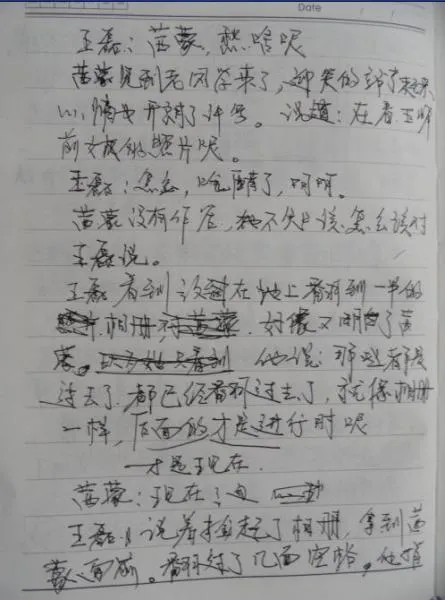 Date
王磊:茵蒙,想啥呢
茵蒙见到老同学来了,
心情也开朗了许多。说道:在看王晖
前女友的照片呢。
王磊:怎么,吃醋了,呵呵。
茵蒙没有作后,她不知该怎么该对
王磊说。
王磊看到放在地上翻到一半的
相册 好像又明白了茵
蒙。他说:那些都是
过去了,都已经翻过去了,就像相册
一样,后面的才是进行时呢
一才是现在.
茵蒙:现在
王磊说着捡起了相册,拿到茵
蒙面前。翻过了几面空格。他指